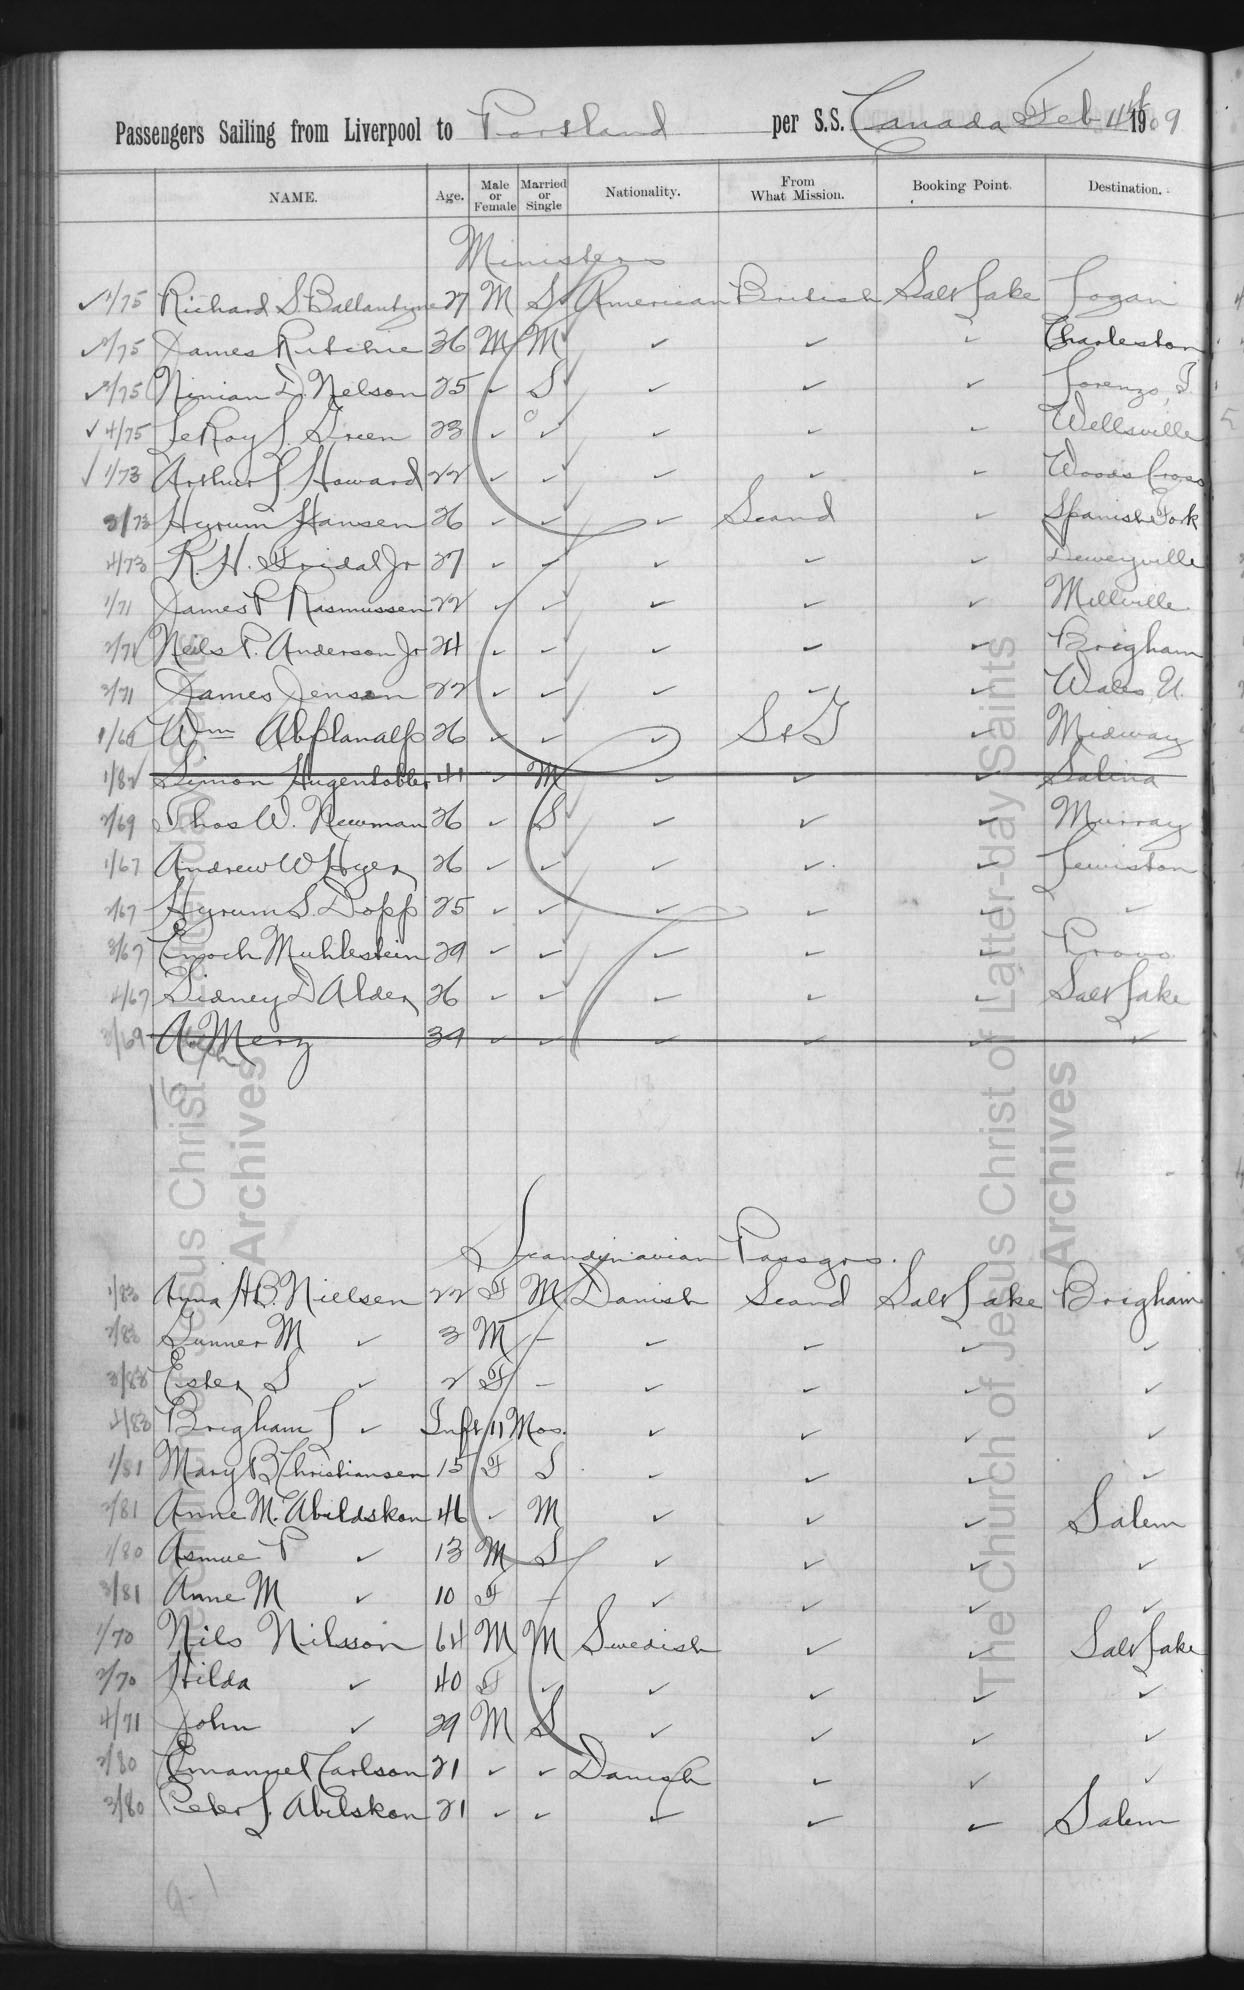 Passengers Sailing from Liverpool to Portland per S.S. Canada Feb 11th 1909
NAME. Age. Male or Female Married or Single Nationality. From What Mission. Booking Point. Destination.
Ministers
✓ 1/75 Richard S. Ballantyne 27 M S American British Salt Lake Logan
✓ 2/75 James Ritchie 36 M M ✓ ✓ ✓ Charleston
✓ 3/75 Ninian D. Nelson 25 ✓ S ✓ ✓ ✓ Lorenzo, I.
✓ 4/75 LeRoy L. Green 23 ✓ ✓ ✓ ✓ ✓ Wellsville
✓ 1/73 Arthur L. Howard 22 ✓ ✓ ✓ ✓ ✓ Woods Cross
2/73 Hyrum Hansen 26 ✓ ✓ ✓ Scand ✓ Spanish Fork
4/73 R. H. Fridal Jr 27 ✓ ✓ ✓ ✓ ✓ Deweyville
1/71 James P. Rasmussen 22 ✓ ✓ ✓ ✓ ✓ Millville
2/71 Neils P. Anderson Jr 24 ✓ ✓ ✓ ✓ ✓ Brigham
3/71 James Jensen 22 ✓ ✓ ✓ ✓ ✓ Wales, U.
1/69 Wm Abplanalp 26 ✓ ✓ ✓ S & G ✓ Midway
1/82 Simon Hugentobler 41 ✓ M ✓ ✓ ✓ Salina
2/69 Thos W. Newman 26 ✓ S ✓ ✓ ✓ Murray
1/67 Andrew W Hyer 26 ✓ ✓ ✓ ✓ ✓ Lewiston
2/67 Hyrum S. Dopp 25 ✓ ✓ ✓ ✓ ✓ ✓
3/67 Enoch Muhlestein 29 ✓ ✓ ✓ ✓ ✓ Provo
4/67 Sidney D Alder 26 ✓ ✓ ✓ ✓ ✓ Salt Lake
3/69 A. Merz 39 ✓ ✓ ✓ ✓ ✓ ✓
16
18
Scandinavian Passgrs.
1/83 Anna H.B. Nielsen 22 F M Danish Scand Salt Lake Brigham
2/83 Gunner M ✓ 3 M – ✓ ✓ ✓ ✓
3/83 Ester S ✓ 2 F – ✓ ✓ ✓ ✓
4/83 Brigham T ✓ Inft 11 Mos. ✓ ✓ ✓ ✓
1/81 Mary B Christiansen 15 F S ✓ ✓ ✓ ✓
2/81 Anne M. Abildskon 46 ✓ M ✓ ✓ ✓ Salem
1/80 Asmue P ✓ 13 M S ✓ ✓ ✓ ✓
3/81 Anne M ✓ 10 F – ✓ ✓ ✓ ✓
1/70 Nils Nilsson 64 M M Swedish ✓ ✓ Salt Lake
2/70 Hilda ✓ 40 F ✓ ✓ ✓ ✓ ✓
4/71 John ✓ 29 M S ✓ ✓ ✓ ✓
2/80 Emanuel Carlson 21 ✓ ✓ Danish ✓ ✓ ✓
3/80 Peter L. Abilskon 21 ✓ ✓ ✓ ✓ ✓ Salem
9-1
The Church of Jesus Christ of Latter-day Saints
Archives
The Church of Jesus Christ of Latter-day Saints
Archives